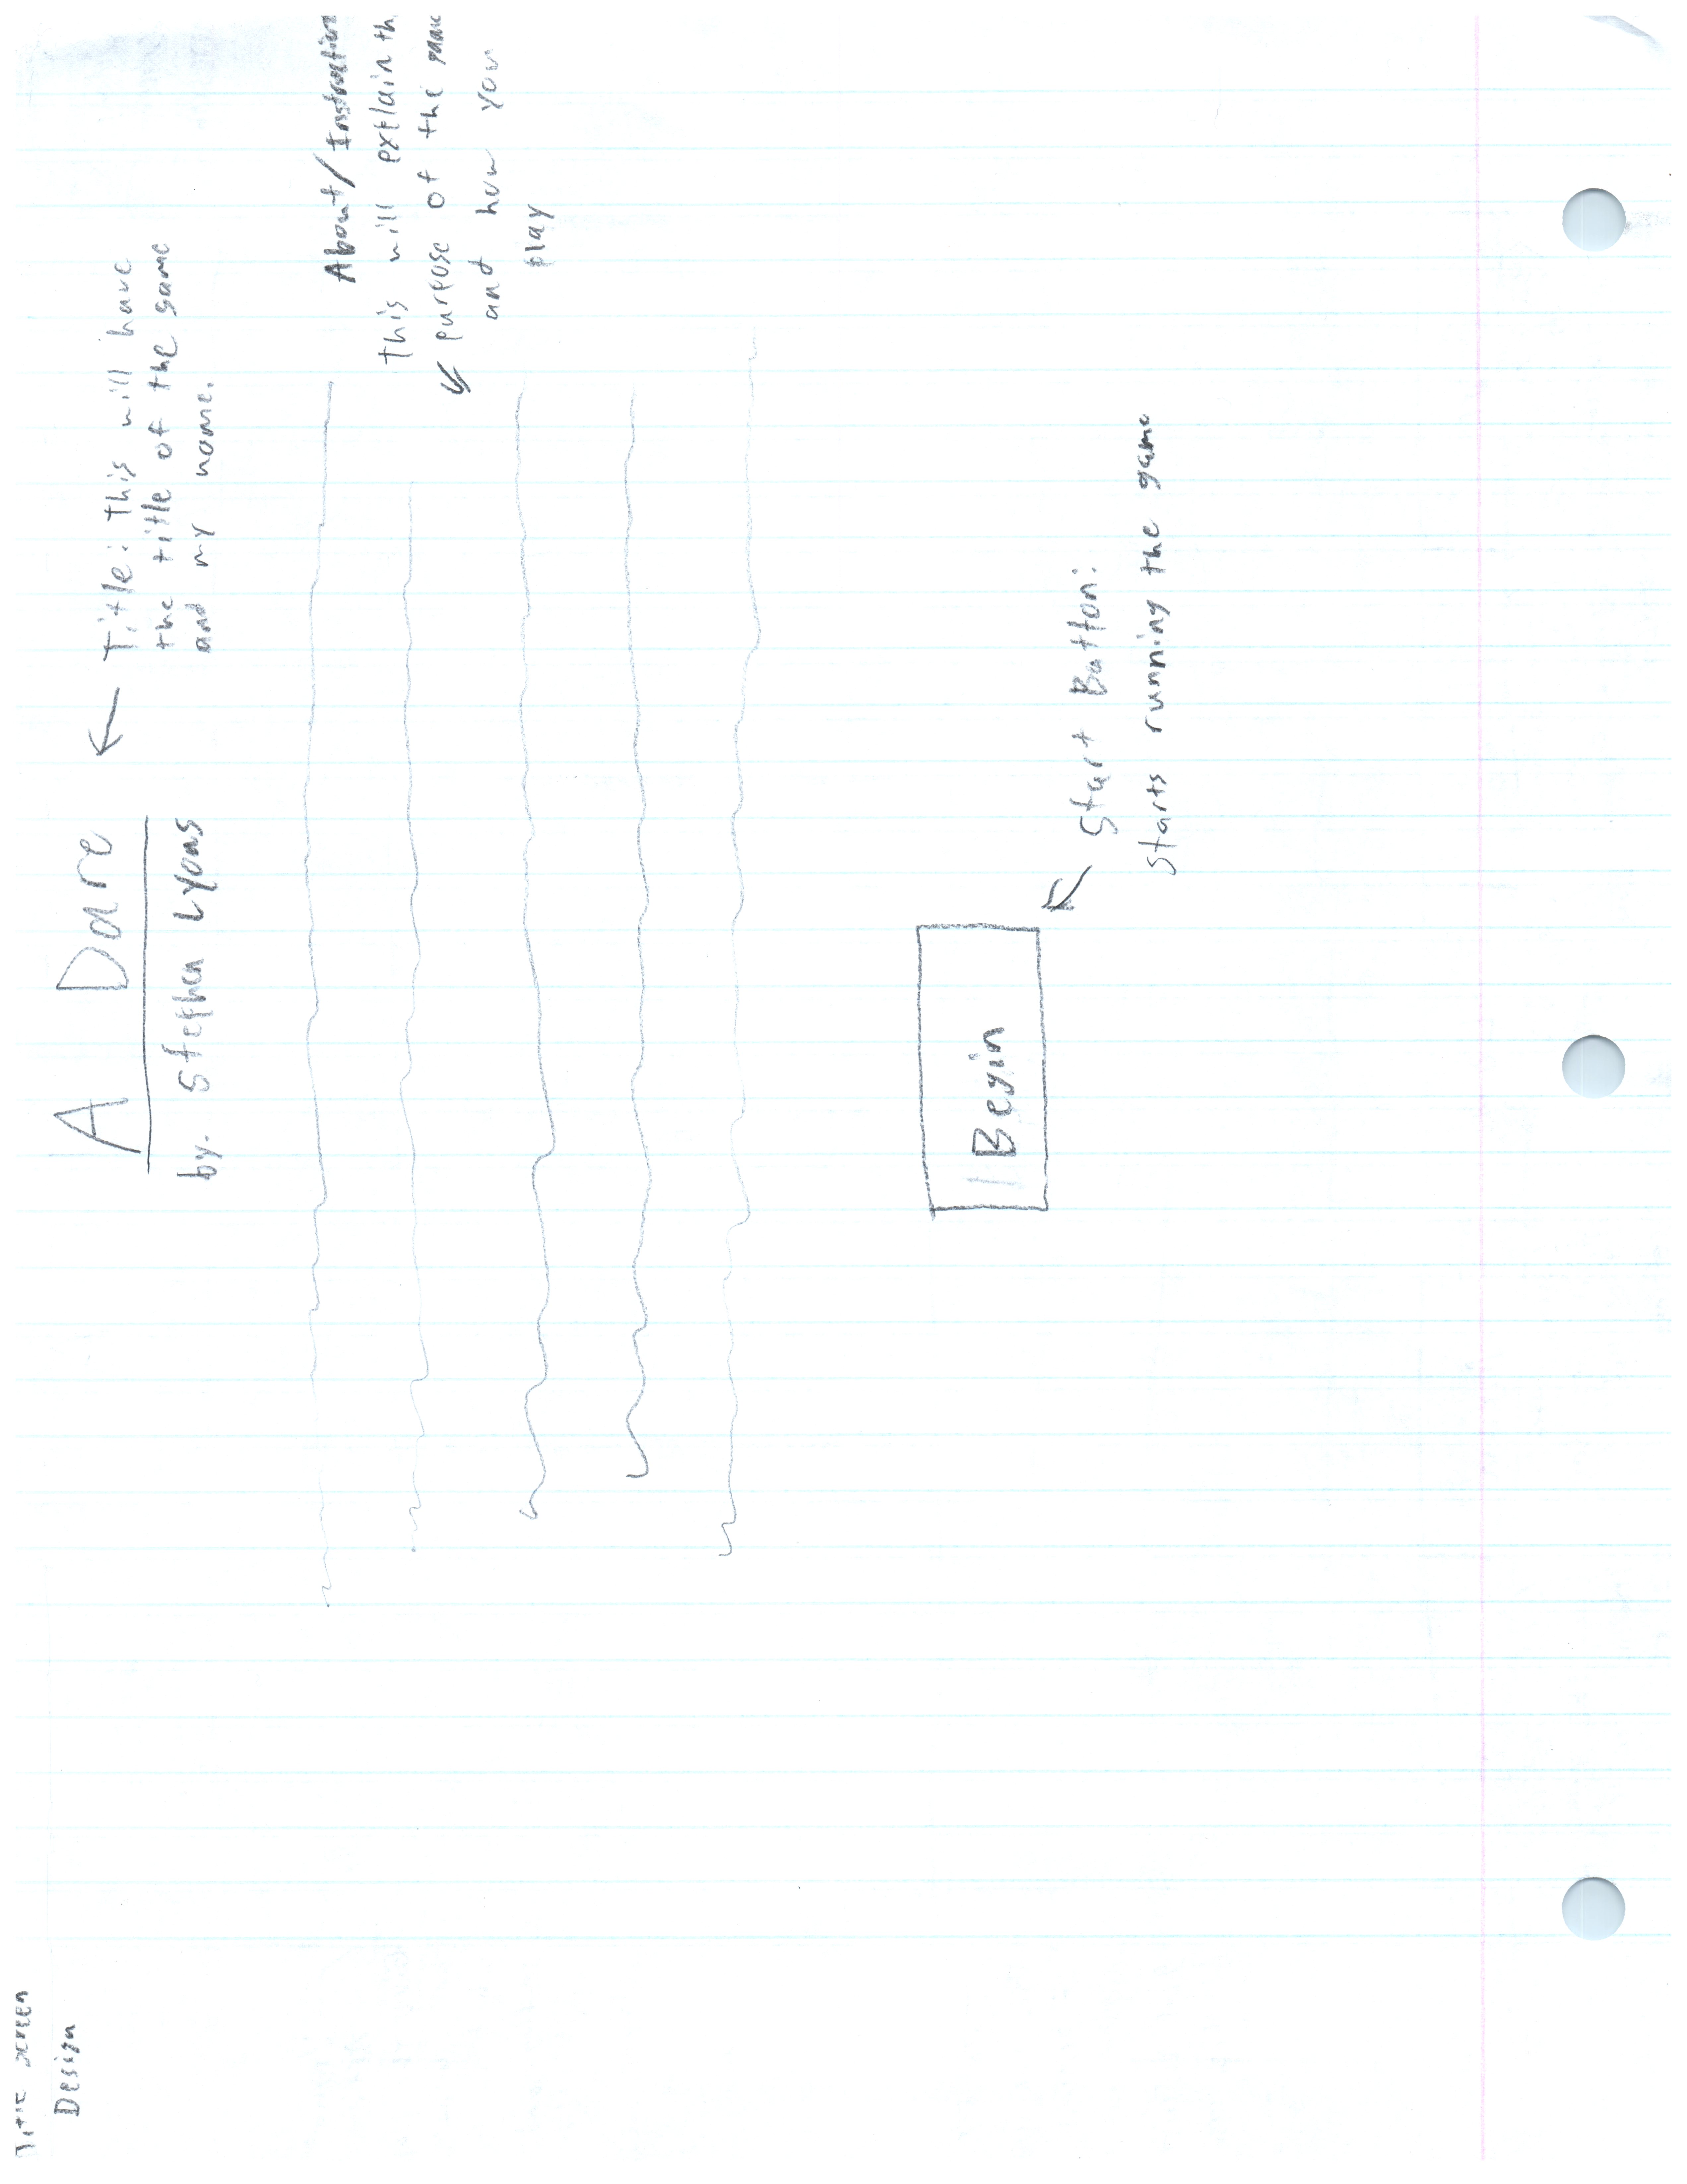 Title screen
Design
A Dare
by. Stephen Lyons
Title: this will have
the title of the game
and my name.
About/Instruction
this will explain th
purpose of the game
and how you
play
Begin
Start Button:
Starts running the game